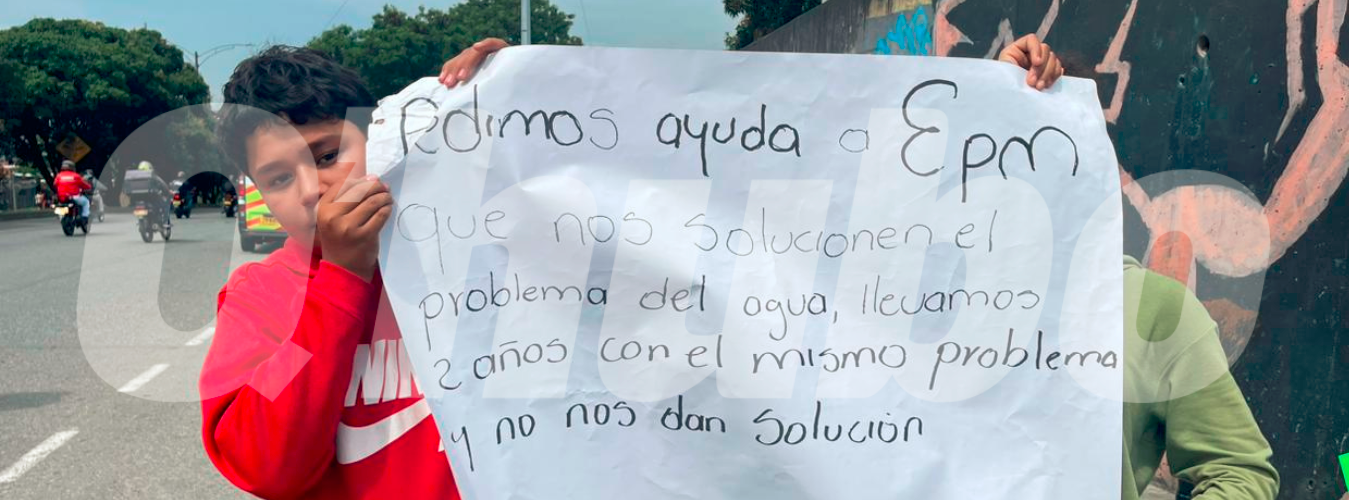 Pedimos ayuda a Epm
que nos solucionen el
problema del agua, llevamos
2 años con el mismo problema
y no nos dan solución